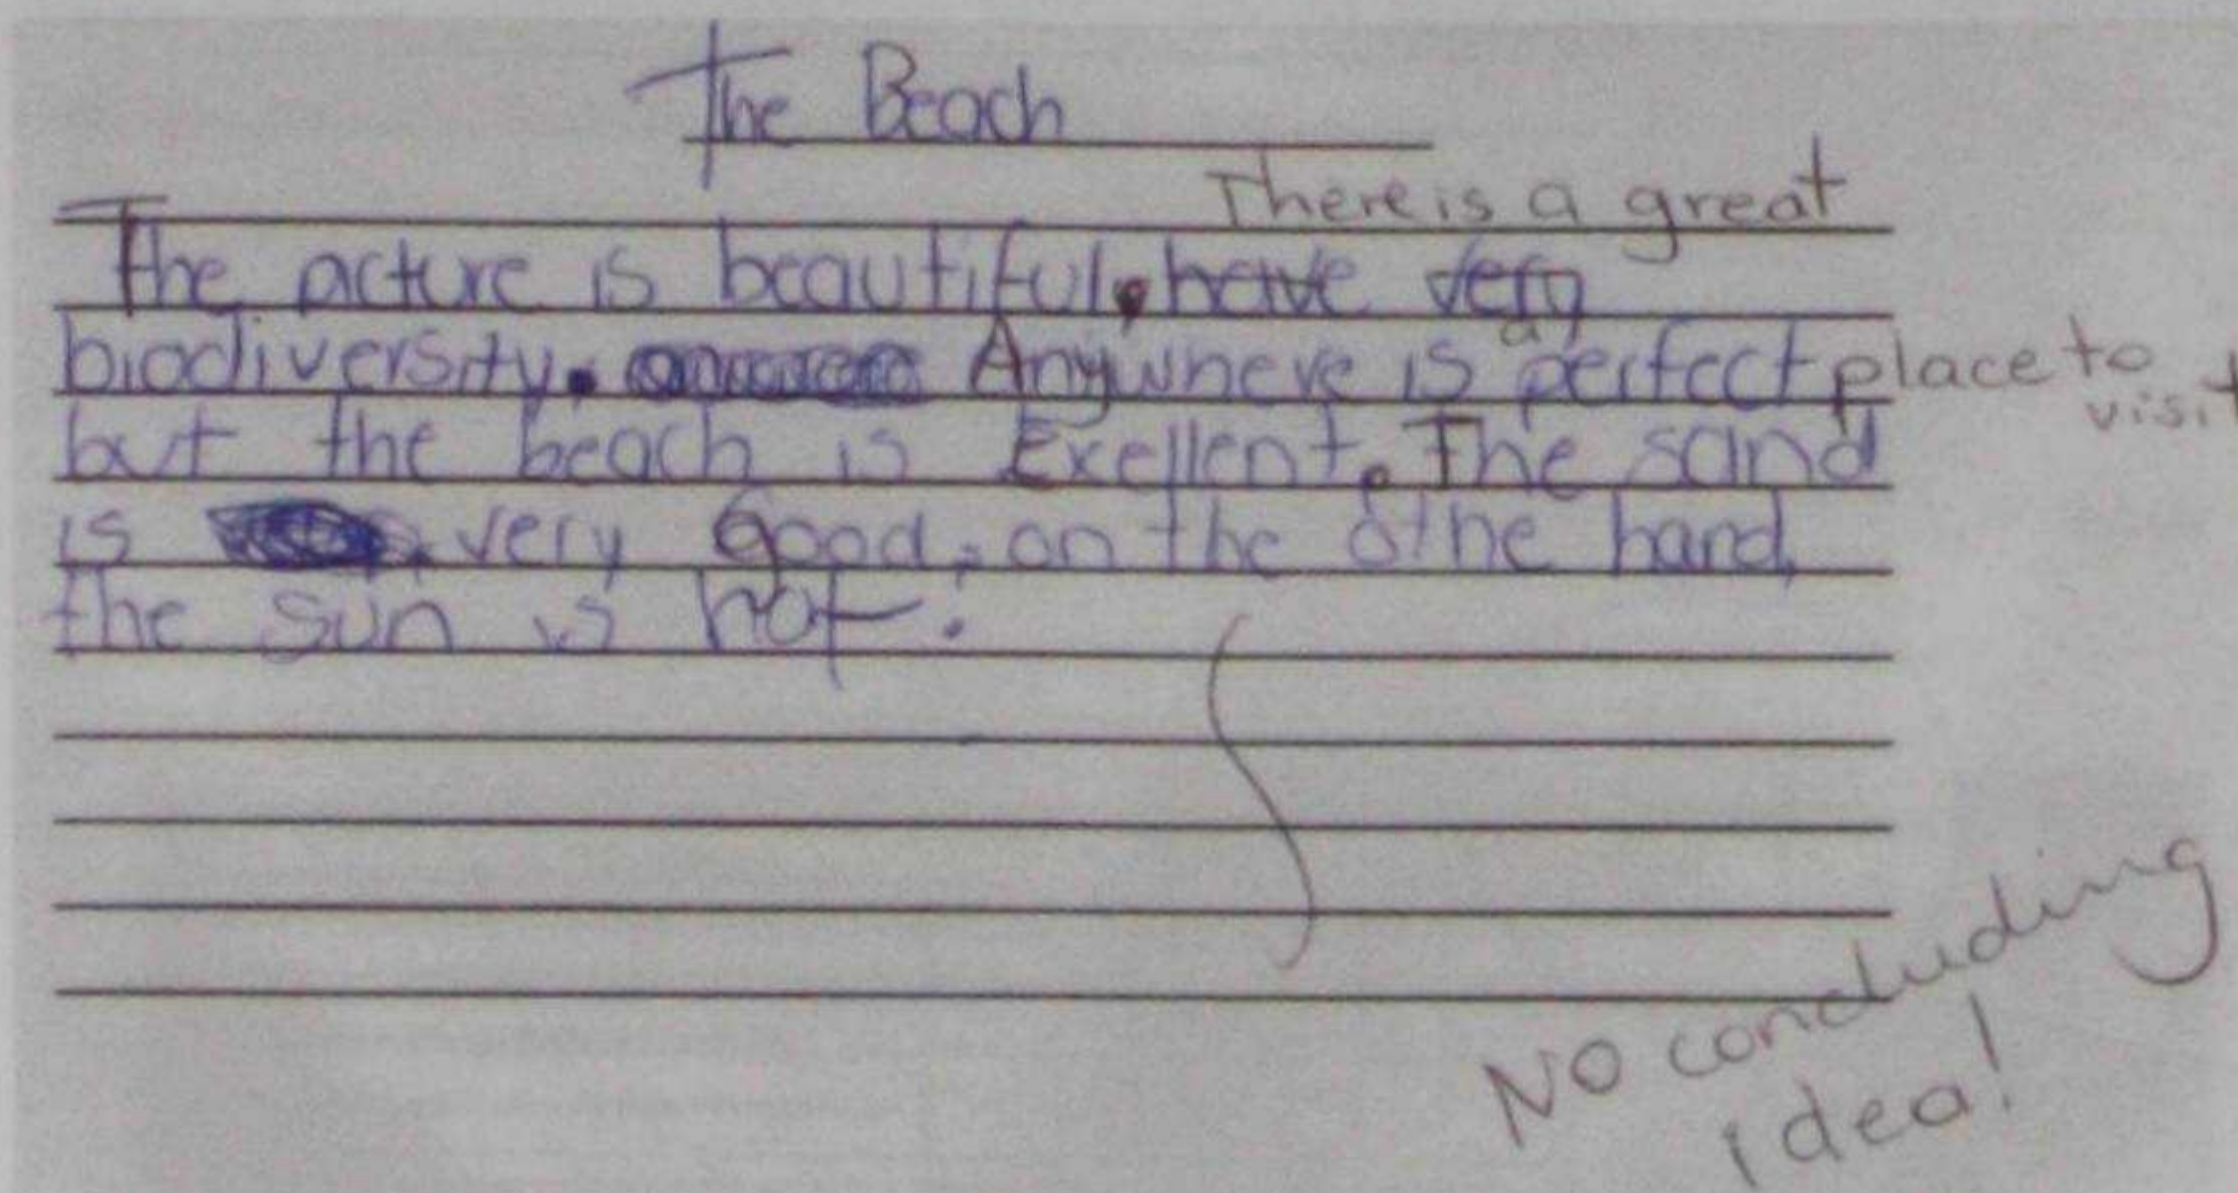 The Beach
There is a great
The picture is beautiful, have very
biodiversity. Anywhere is a perfect place to
visit
but the beach is Exellent. The sand
is very Good, on the othe hand,
the sun is hot.
No concluding
idea!